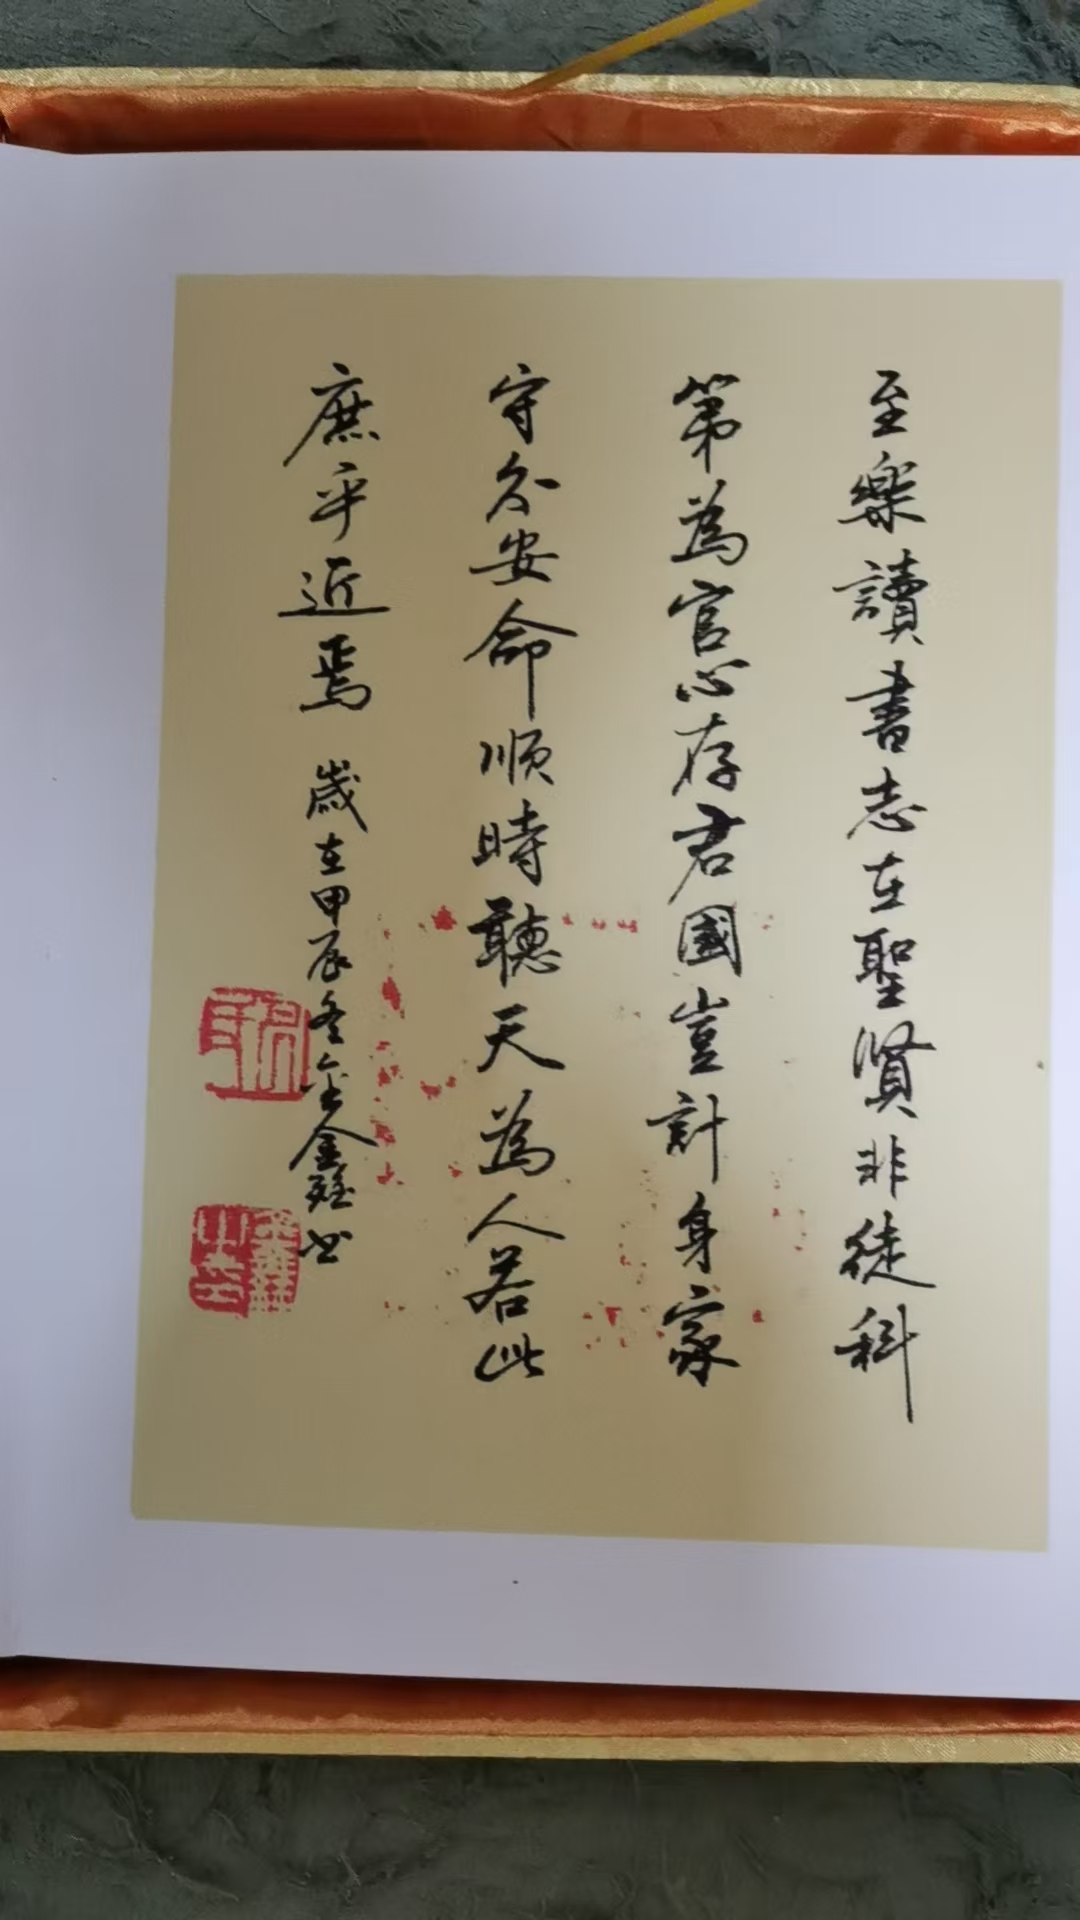 至樂讀書志在聖賢非徒科
第為官心存君國豈計身家
守分安命順時聽天為人若此
庶乎近焉 歲在甲辰冬金鑫書